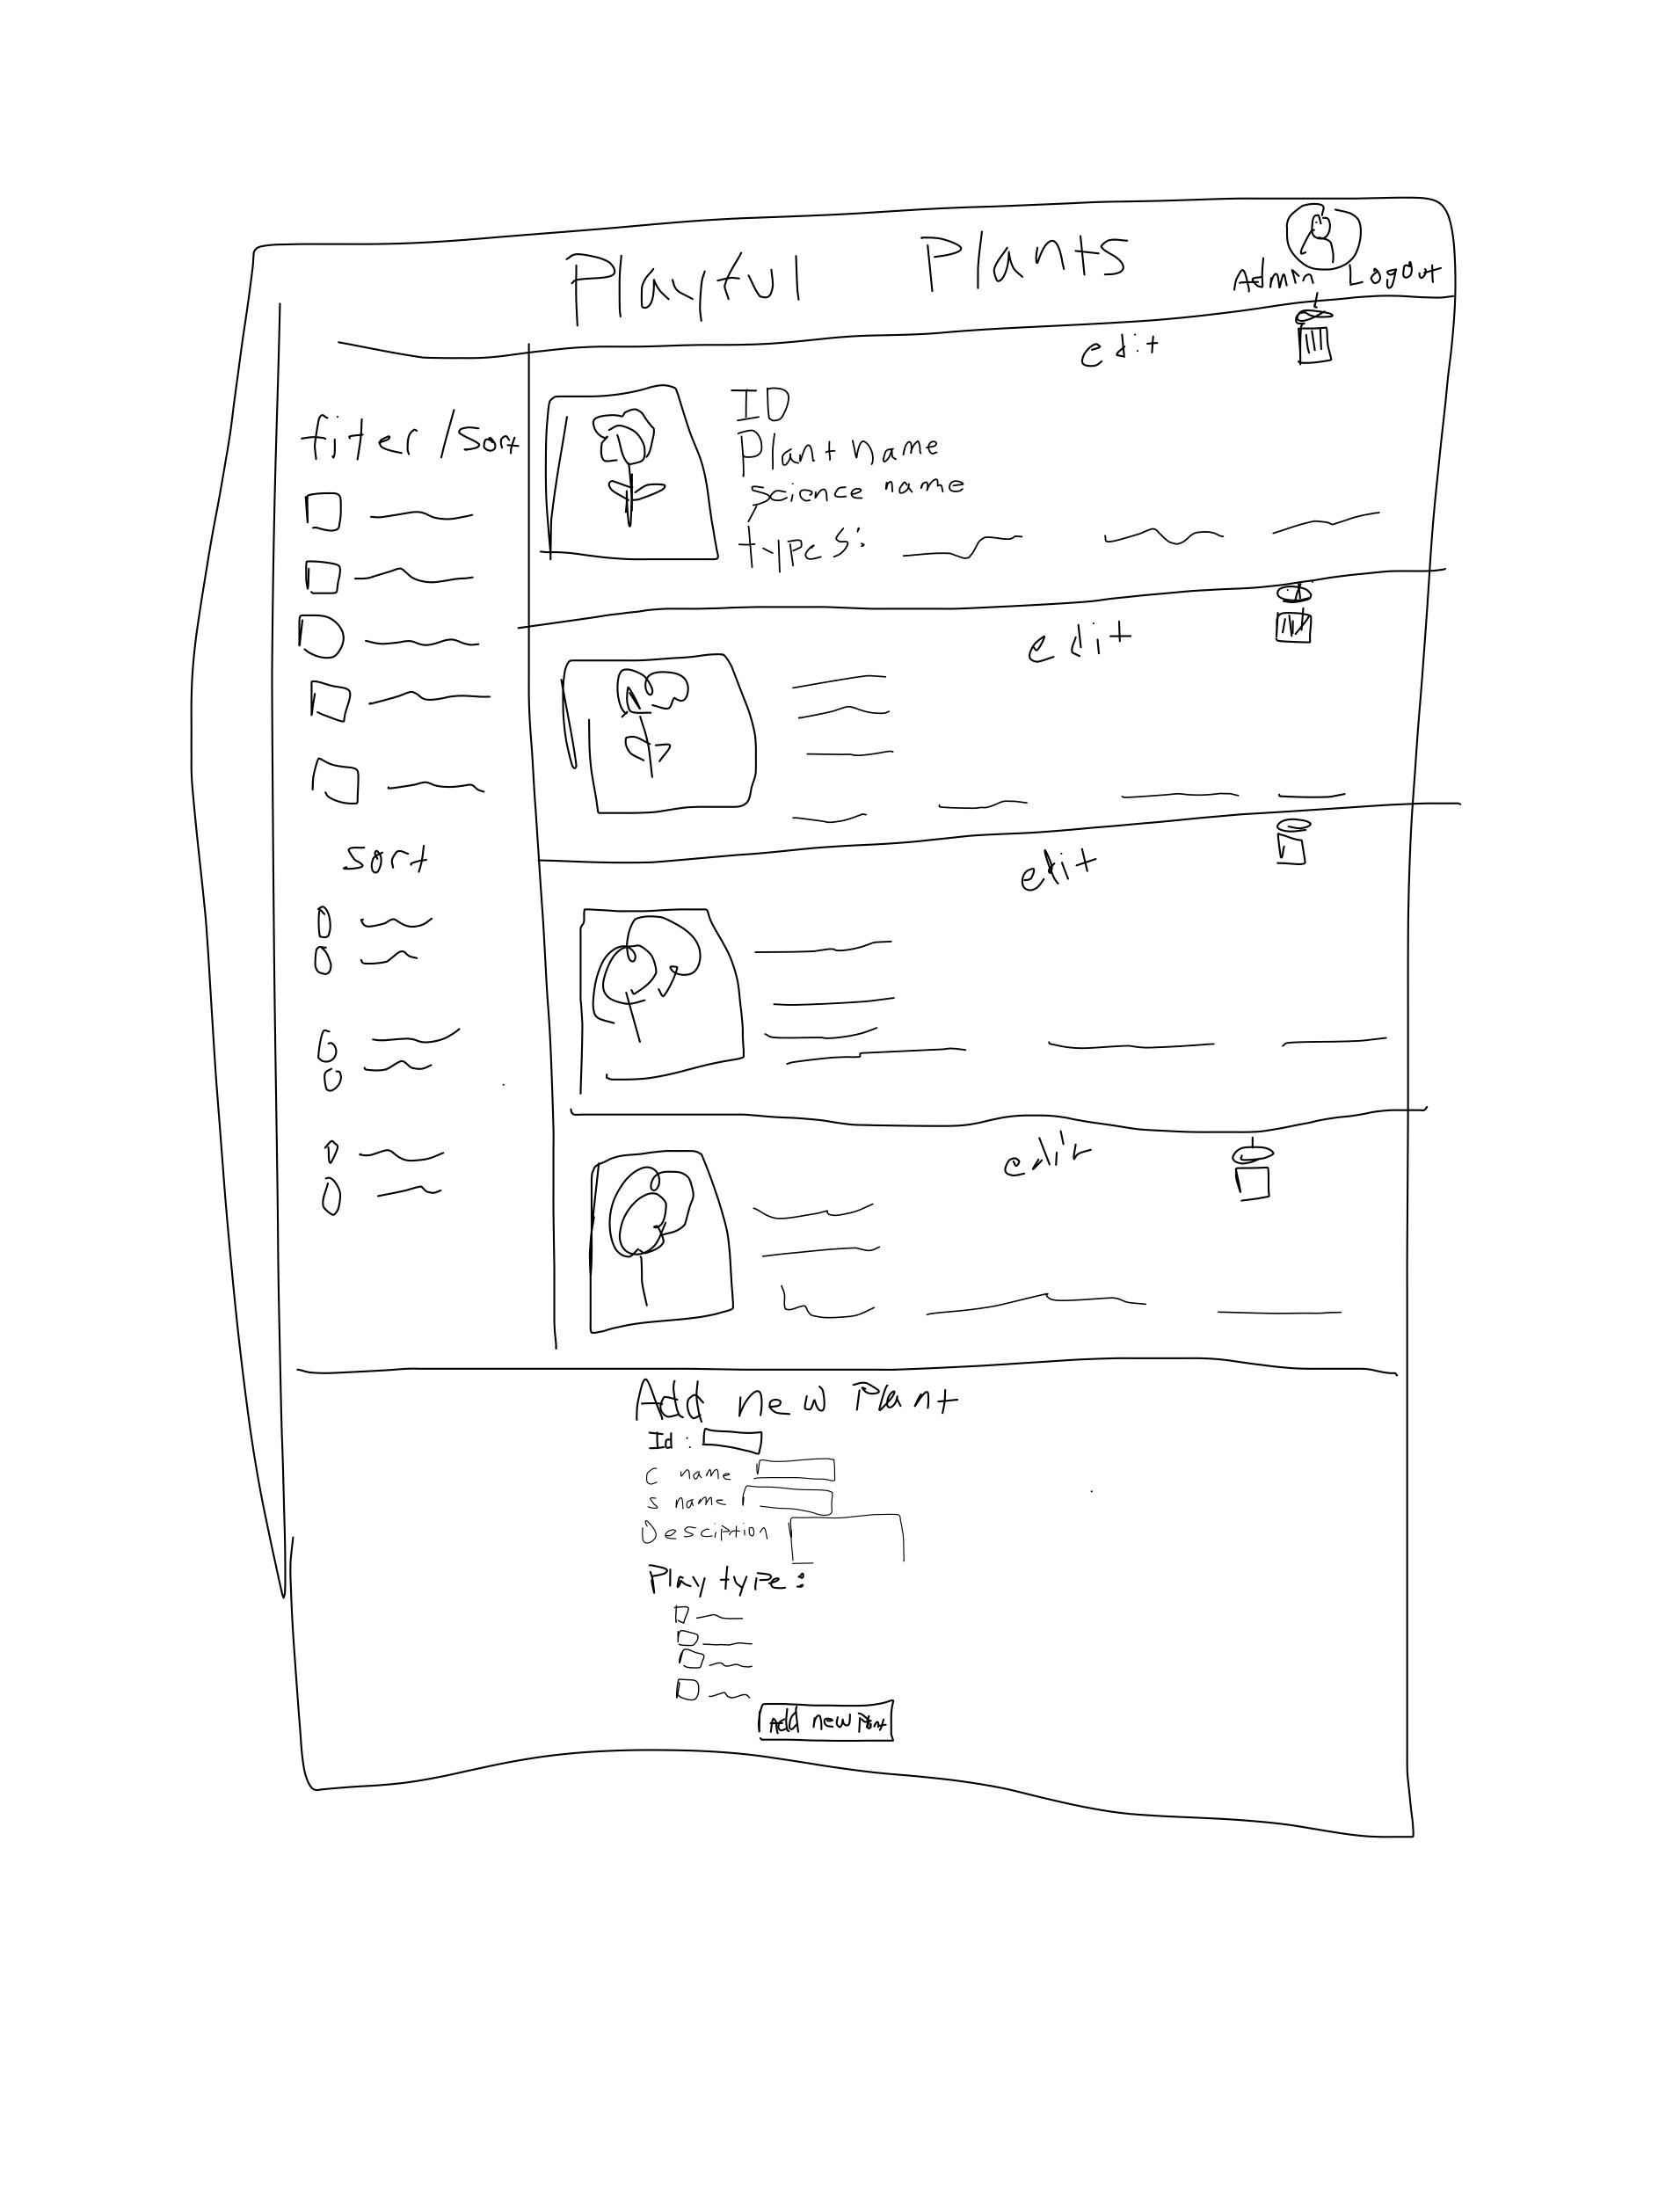 Playful Plants
Admin Logout
edit
filter/sort
ID
Plant name
science name
types:
edit
sort
edit
edit
Add new Plant
Id:
C name
S name
Desciption
Play type:
Add new Plant